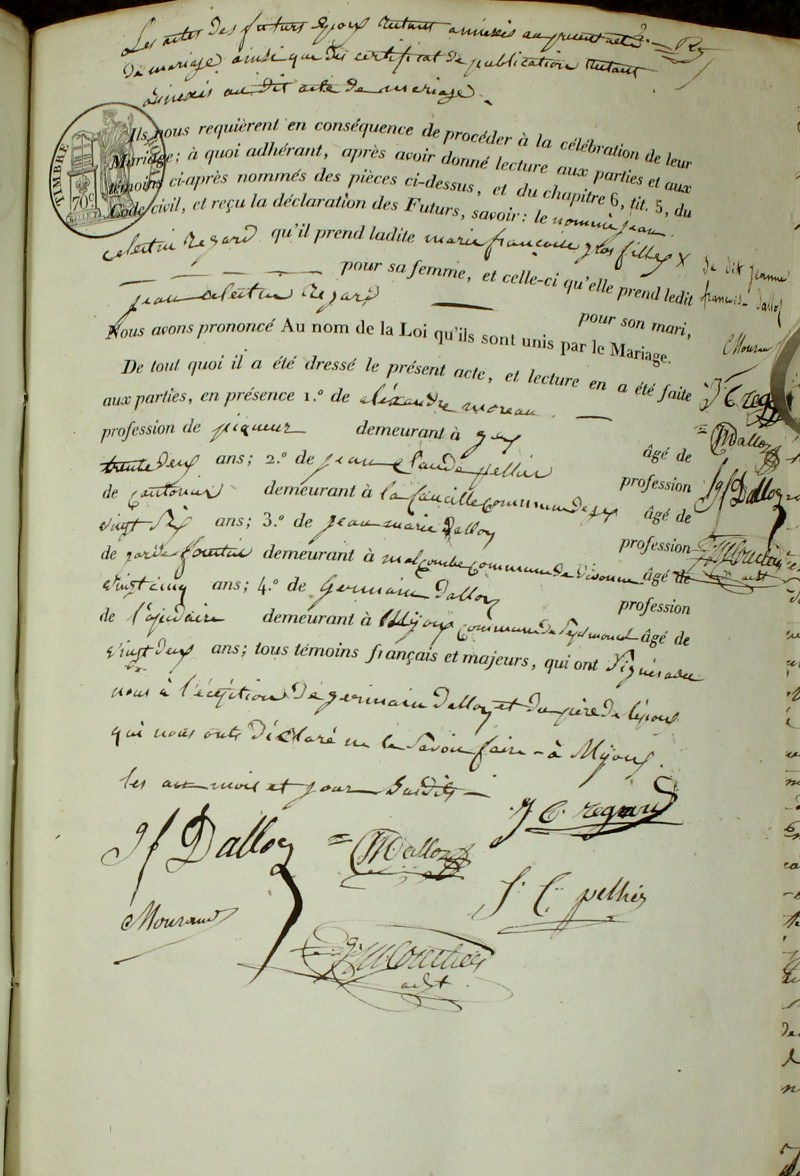 Les actes des futurs époux étant annexés au présent acte
de mariage ainsi que du certificat de publication étant
annexés au dit acte de mariage.
TIMBRE
70c
Ils nous requièrent en conséquence de procéder à la célébration de leur
Mariage; à quoi adhérant, après avoir donné lecture aux parties et aux
témoins ci-après nommés des pièces ci-dessus, et du chapitre 6, tit. 5, du
Code civil, et reçu la déclaration des Futurs, savoir: le nommé jean
celestin Regard qu'il prend ladite marie françoise gros fille X
pour sa femme, et celle-ci qu'elle prend ledit
jean celestin Regard pour son mari,
Nous avons prononcé Au nom de la Loi qu'ils sont unis par le Mariage.
De tout quoi il a été dressé le présent acte, et lecture en a été faite
aux parties, en présence 1.º de aléxandre moreau
profession de piqueur demeurant à gex âgé de
trente deux ans; 2.º de jean Claude pellier profession
de cantonier demeurant à la faucille commune de gex âgé de
vingt six ans; 3.º de jean marie Dalloz profession
de garde demeurant à malcombe commune de Divonne âgé de
vingt cinq ans; 4.º de germain Dalloz profession
de lapidaire demeurant à Mijoux commune de Septmoncel âgé de
vingt deux ans; tous témoins français et majeurs, qui ont signés avec
nous à l'éception de germain Dalloz et du père de l'époux
qui nous onts Déclaré ne le Savoir faire - à Mijoux
les an mois et jour Susdits
J C regard
jf Dalloz
JM Dalloz
J. C. pellier
Mouraux
adjt
X de dit jeanne
francoise Dalloz
Mouraux
J C reg
JM Dalloz
jf Dalloz
adjt